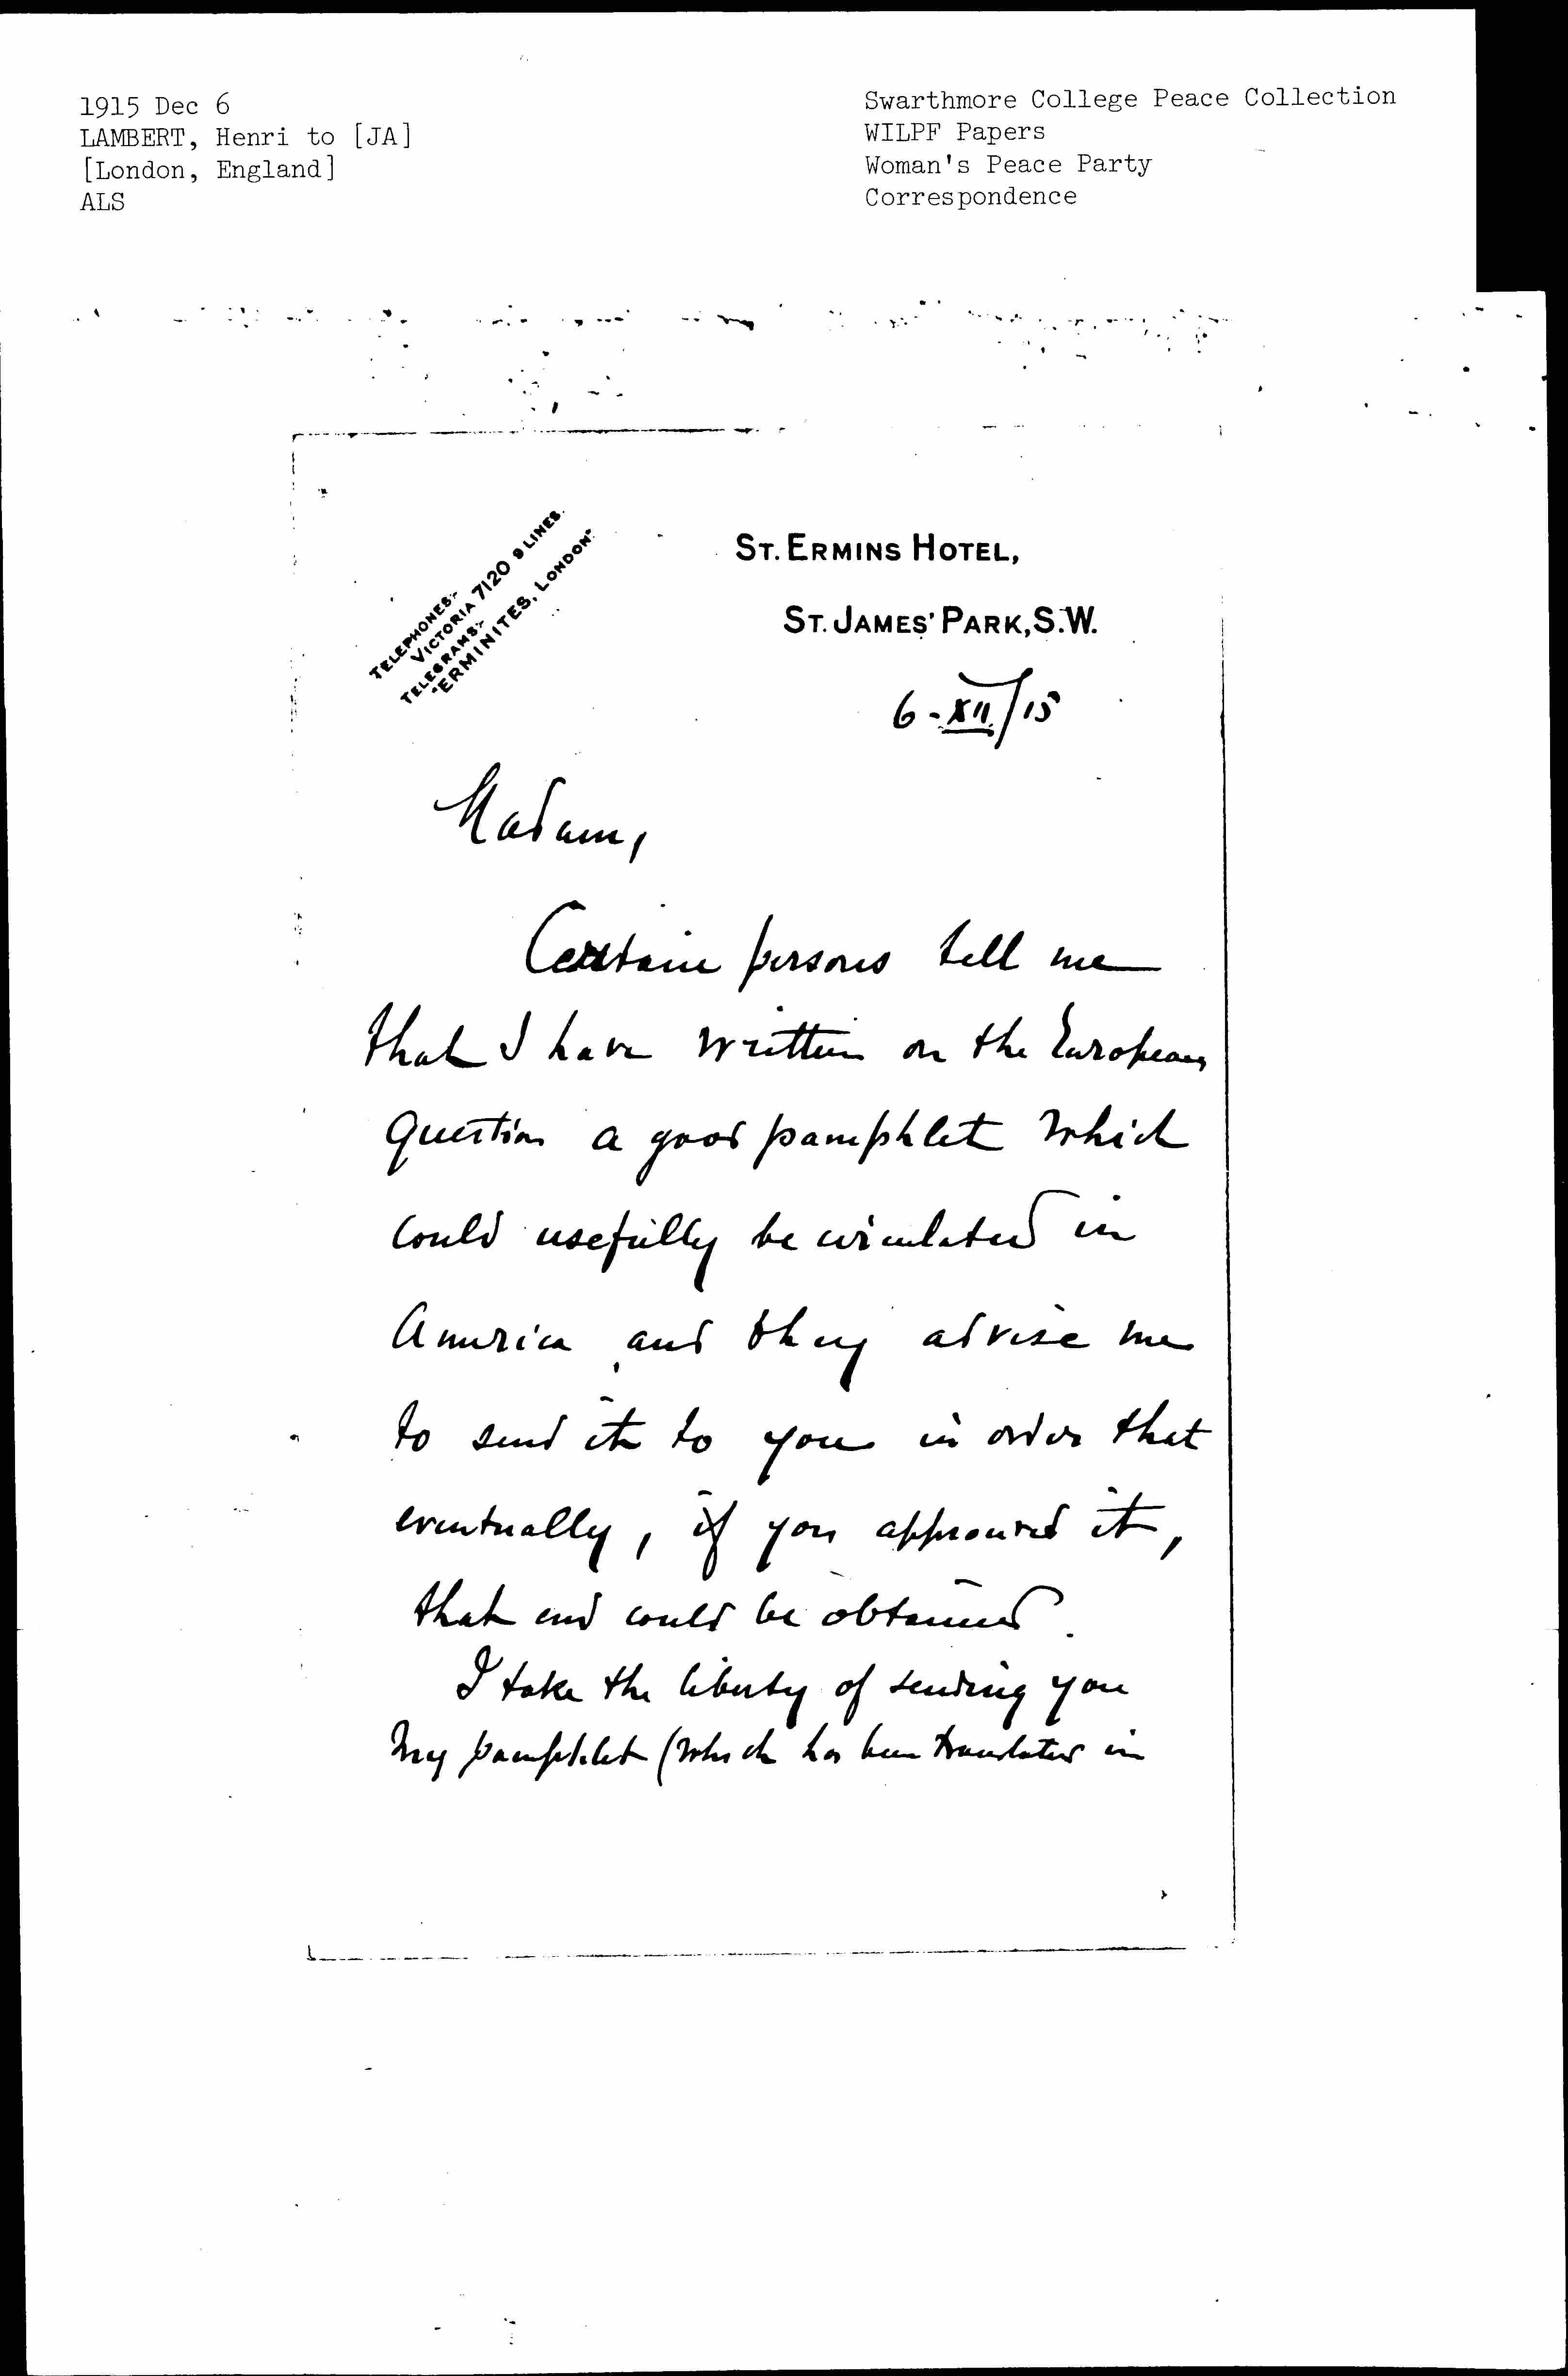 1915 Dec 6
LAMBERT, Henri to [JA]
[London, England]
ALS
Swarthmore College Peace Collection
WILPF Papers
Woman's Peace Party
Correspondence
TELEPHONES:-
VICTORIA 7120 9 LINES.
TELEGRAMS:-
"ERMINITES, LONDON".
ST. ERMINS HOTEL,
ST. JAMES' PARK, S.W.
6-XII/15
Madam,
Certain persons tell me
that I have written on the European
question a good pamphlet which
could usefully be circulated in
America and they advise me
to send it to you in order that
eventually, if you approuved it,
that end could be obtained.
I take the liberty of sending you
my pamphlet (which has been translated in